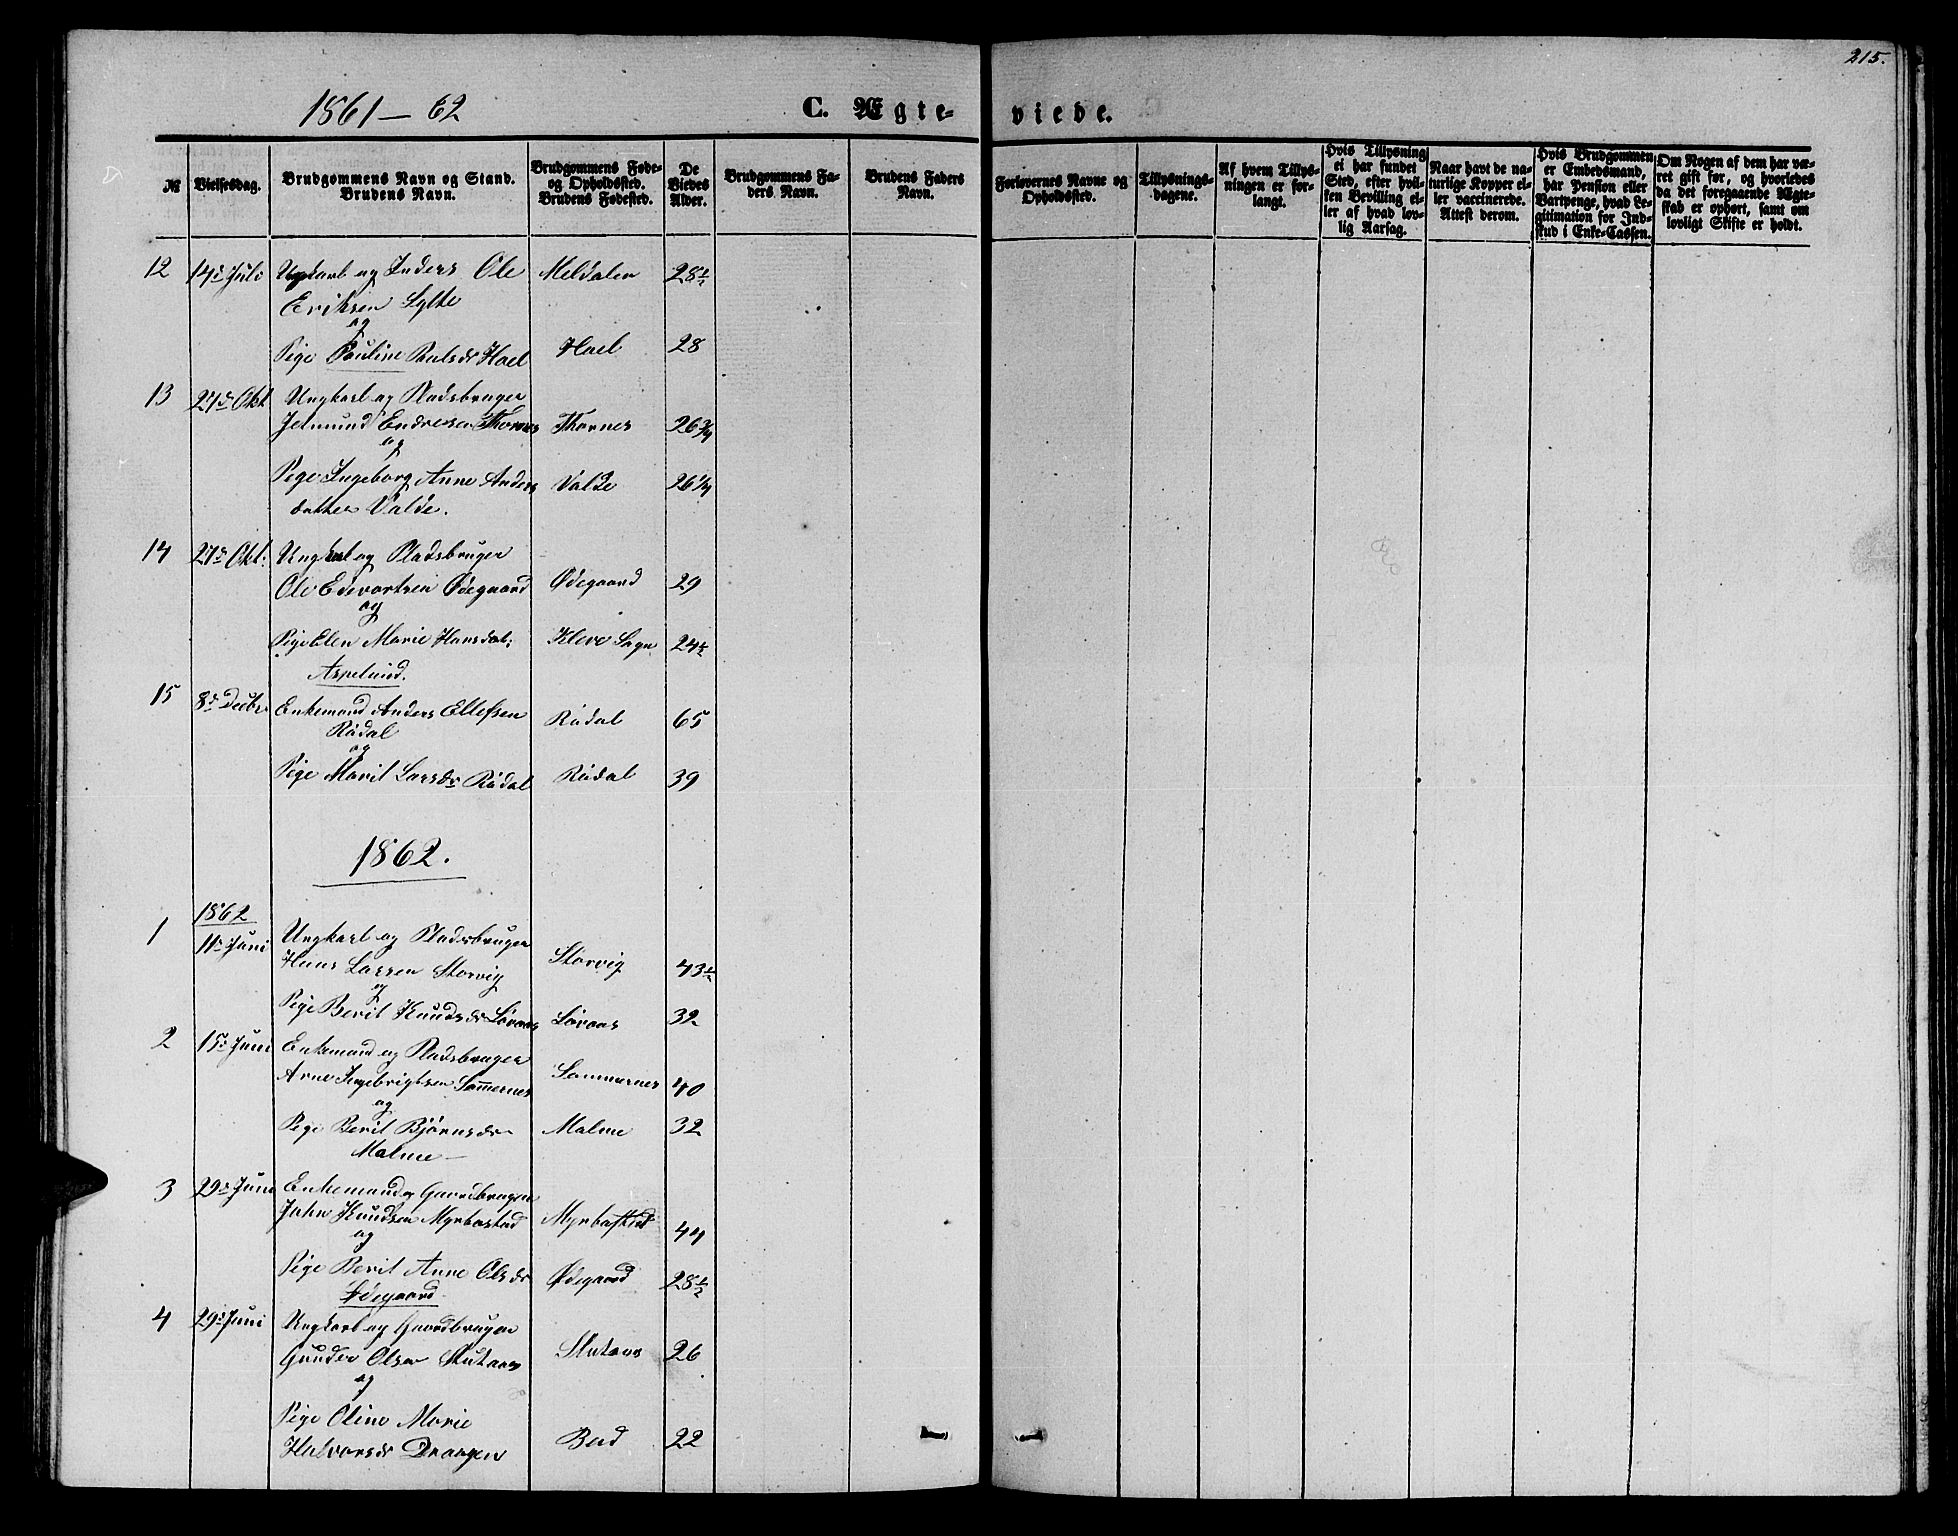 215.
1861 – 62
C. Ægte-
viede.
№
Vielsesdag.
Brudgommens Navn og Stand.
Brudens Navn.
Brudgommens Føde-
og Opholdssted.
Brudens Fødested.
De
Viedes
Alder.
Brudgommens Fa-
ders Navn.
Brudens Faders
Navn.
Forlovernes Navne og
Opholdssted.
Tillysnings-
dagene.
Af hvem Tillys-
ningen er for-
langt.
Hvis Tillysning
ei har fundet
Sted, efter hvil-
ken Bevilling el-
ler af hvad lov-
lig Aarsag.
Naar havt de na-
turlige Kopper el-
ler vaccinerede.
Attest derom.
Hvis Brudgommen
er Embedsmand,
har Pension eller
Vartpenge, hvad Le-
gitimation for Ind-
skud i Enke-Cassen.
Om Nogen af dem har væ-
ret gift før, og hvorledes
da det foregaaende Ægte-
skab er ophørt, samt om
lovligt Skifte er holdt.
12 14de Juli Ungkarl og Inders Ole Meldalen 28½
Eriksen Sylte
og
Pige Pauline Paulsdr Hoel Hoel 28
13 27de Okt Ungkarl og Pladsbruger
Jetmund Endresen Thornes Thornes 26¾
og
Pige Ingeborg Anne Anders Valde 26¼
datter Valde.
14 27de Okt: Ungkarl og Pladsbruger
Ole Edevartsen Ødegaard Ødegaard 29
og
Pige Elen Marie Hansdat: Kleve Sogn 24½
Aspelund.
15 8de Decbr Enkemand Anders Ellefsen Rødal 65
Rødal
og
Pige Marit Larsdr Rødal Rødal 39
1862.
1862
1 11te Juni Ungkarl og Pladsbruger
Hans Larsen Storvig Storvig 43½
og
Pige Berit Knudsdr Løvaas Løvaas 32
2 15de Juni Enkemand og Pladsbruger
Arne Ingebrigtsen Sammernes Sammernes 40
og
Pige Berit Bjørnsdr Malme 32
Malme
3 29de Juni Enkemand og Gaardbruger
John Knudsen Myrbostad Myrbostad 44
og
Pige Berit Anne Olsdr Ødegaard 28½
Ødegaard
4 29de Juni Ungkarl og Gaardbruger
Gunder Olsen Slutaas Slutaas 26
og
Pige Oline Marie
Halvorsdr Draagen Bud 22